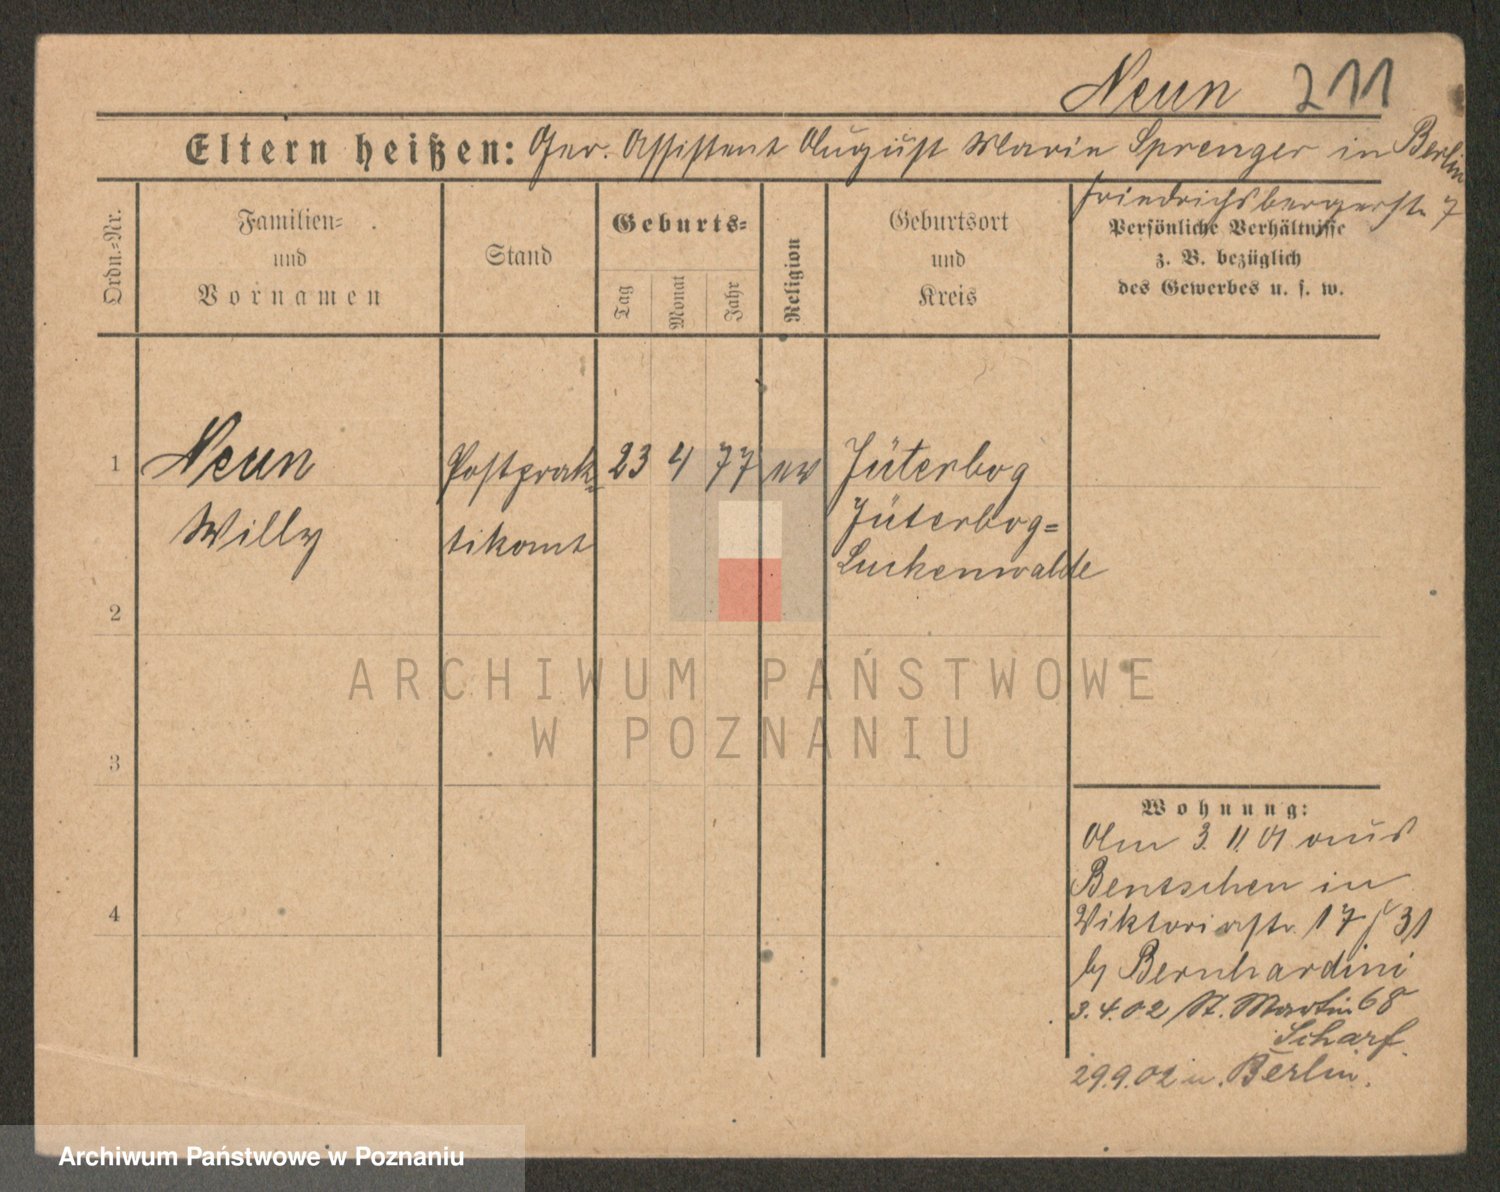 Neun 211
Eltern heißen: Ger. Assistent August Marie Sprenger in Berlin
Friedrichsbergerstr. 7
Ordn.-Nr.
Familien-
und
Vornamen
Stand
Geburts-
Tag
Monat
Jahr
Religion
Geburtsort
und
Kreis
Persönliche Verhältnisse
z. B. bezüglich
des Gewerbes u. s. w.
1 Neun Postprak- 23 4 77 ev Jüterbog
Willy tikant Jüterbog-
Luckenwalde
2
3
4
ARCHIWUM PAŃSTWOWE
W POZNANIU
Wohnung:
Am 3. 11. 01 aus
Bentschen in
Viktoriastr. 17 31
by Bernhardini
3.4.02 St. Martin 68
Scharf.
29.9.02 n. Berlin.
Archiwum Państwowe w Poznaniu